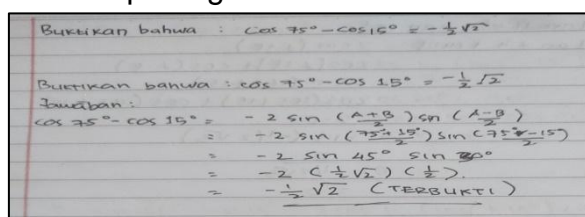 Buktikan bahwa : cos 75° - cos 15° = -½√2
Buktikan bahwa : cos 75° - cos 15° = -½√2
Jawaban :
cos 75° - cos 15° = -2 sin (A+B/2) sin (A-B/2)
= -2 sin (75°+15°/2) sin (75°-15/2)
= -2 sin 45° sin 30°
= -2 (½√2) (½).
= -½√2 (TERBUKTI)